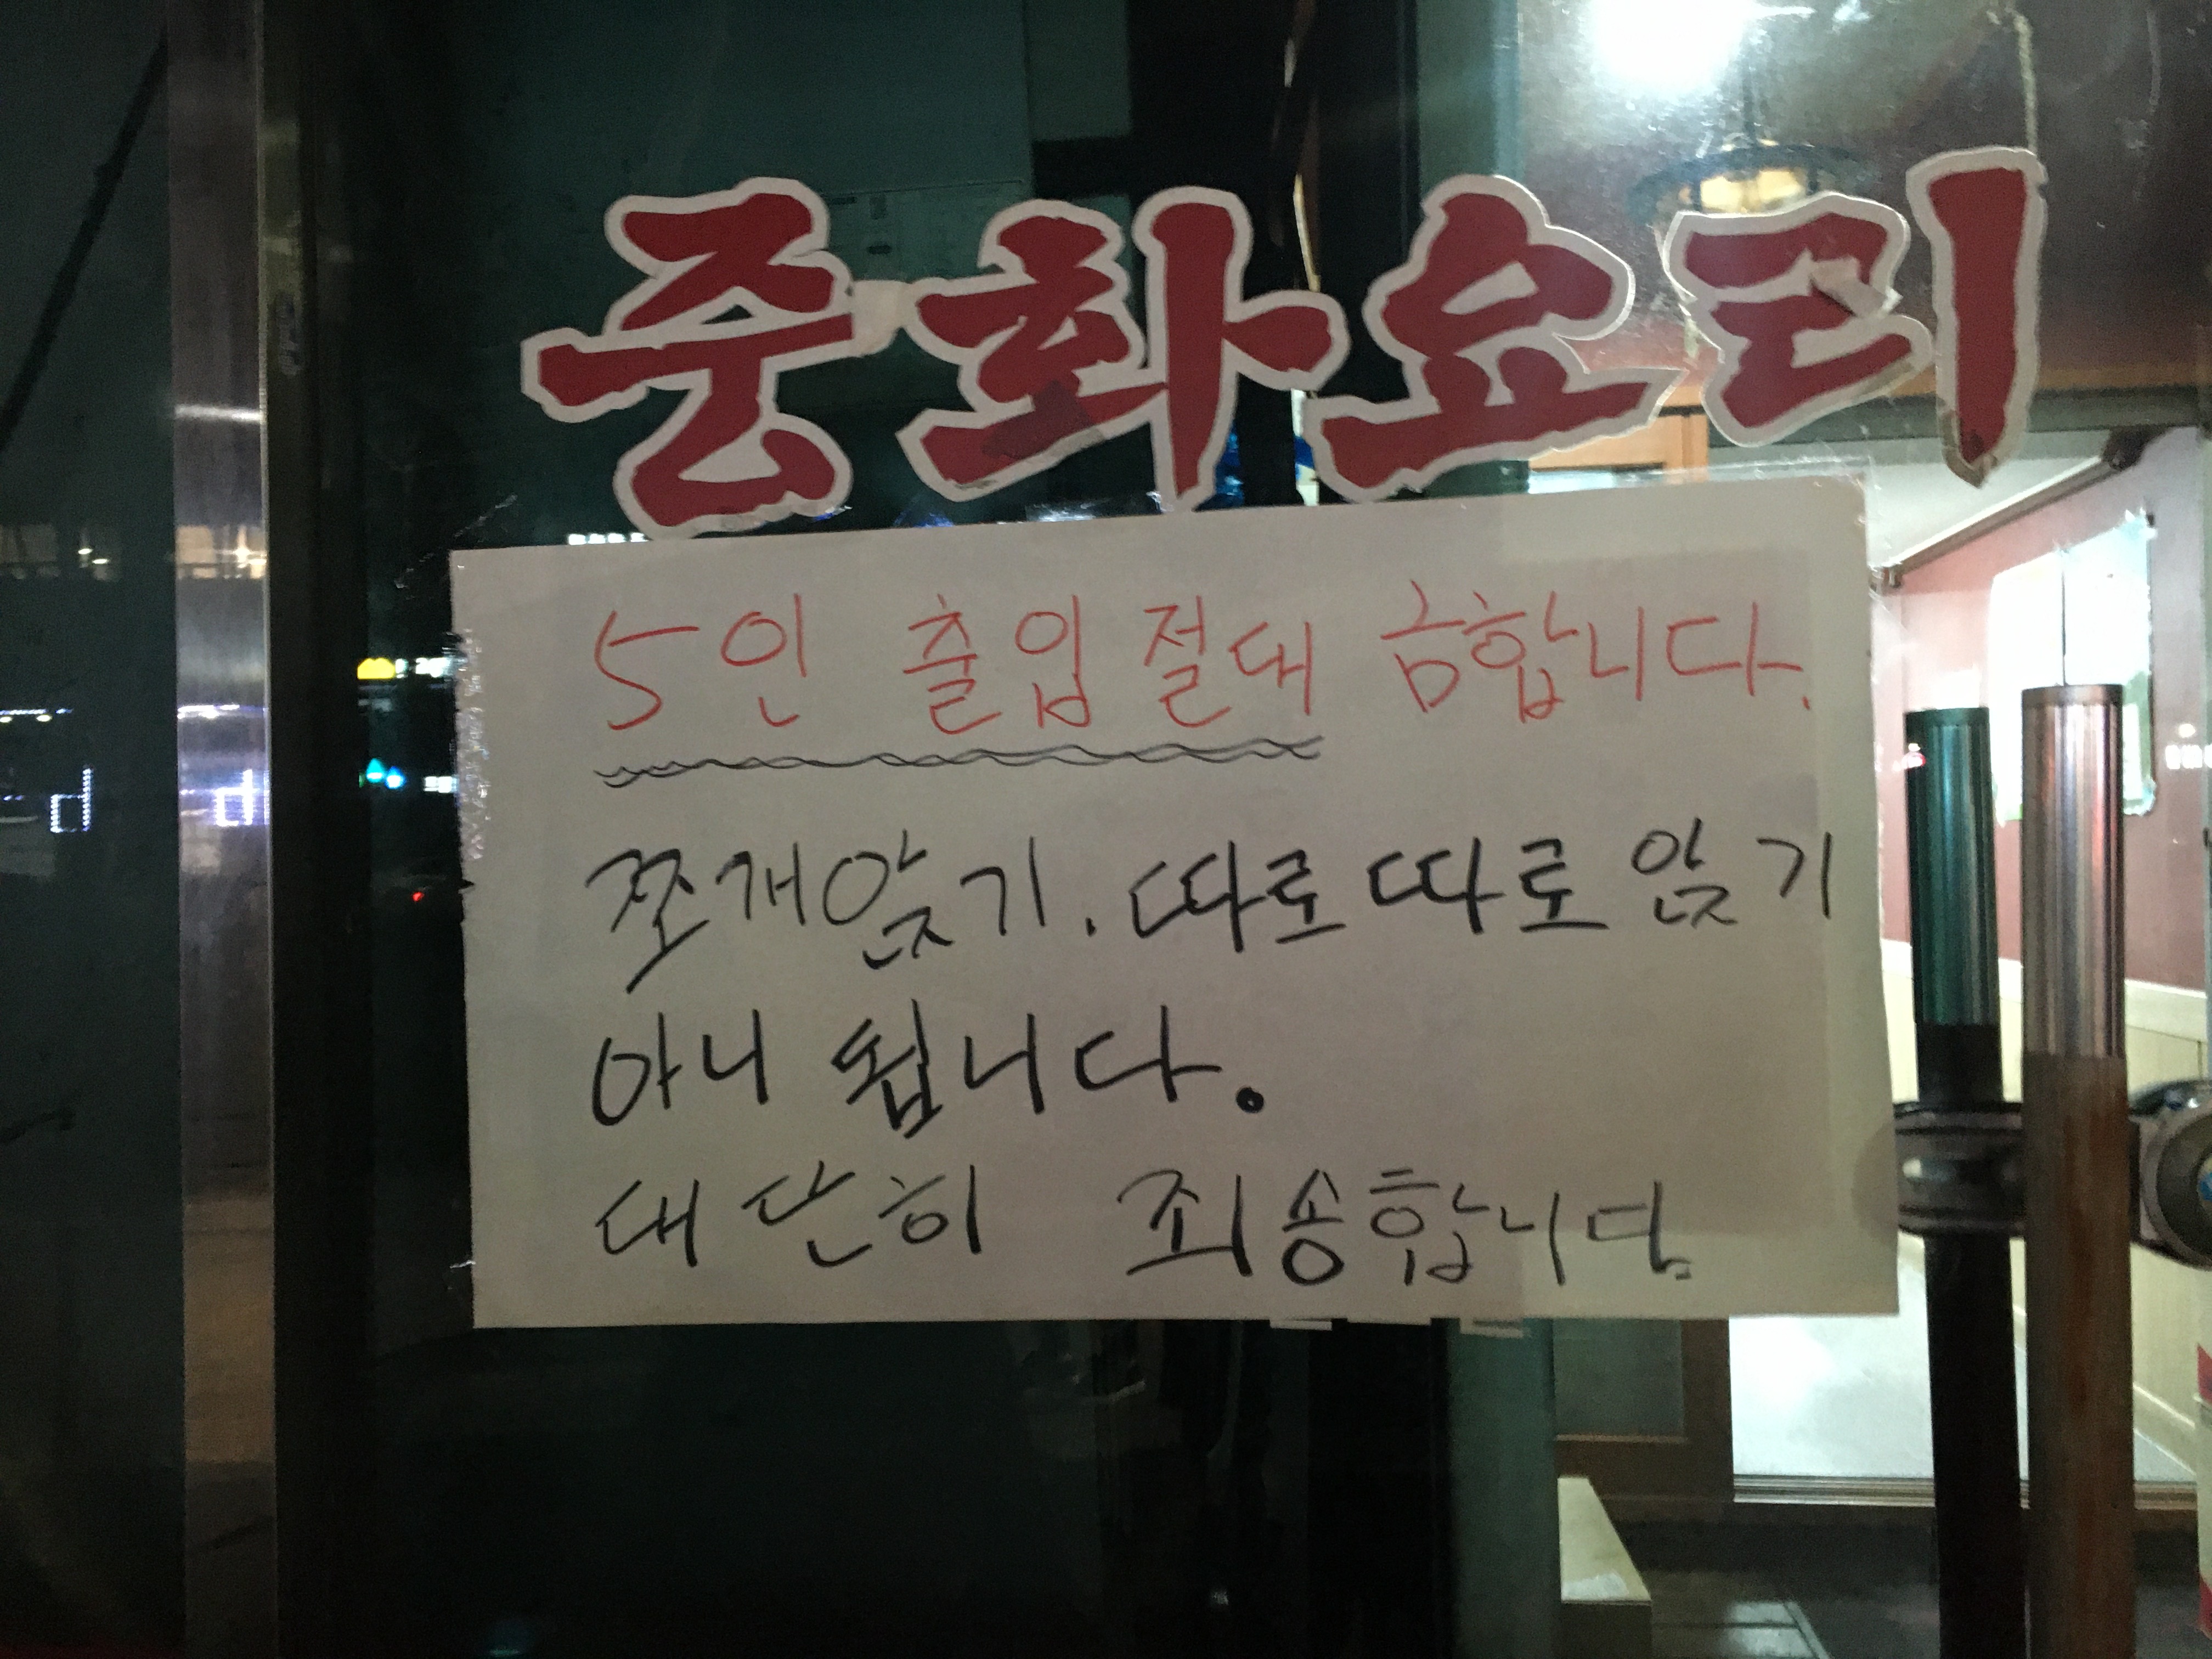 중화요리
5인 출입 절대 금합니다.
쪼개앉기. 따로따로 앉기
아니 됩니다.
대단히 죄송합니다